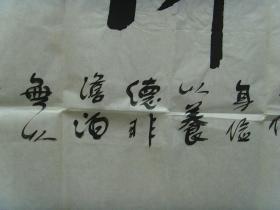 身儉
以養
德非
澹泊
無以